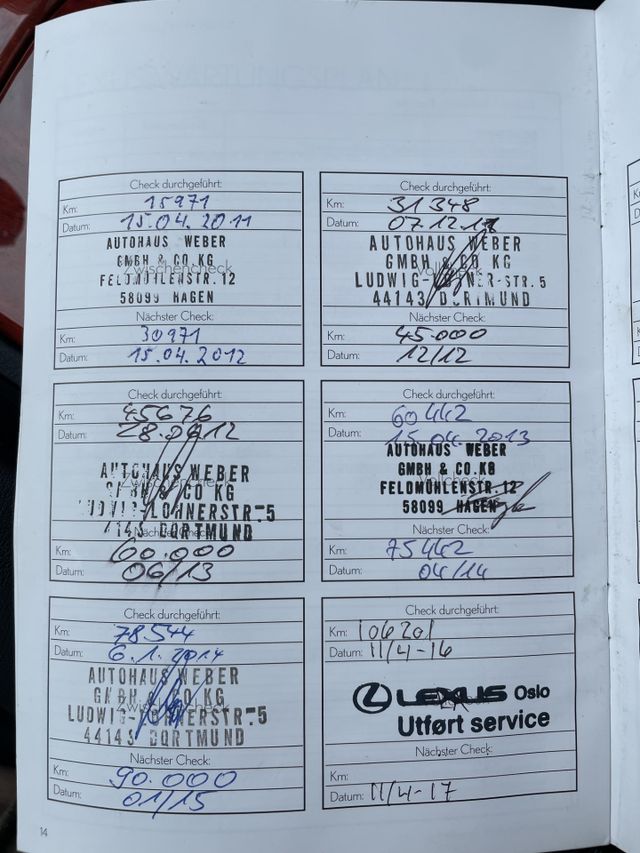 Check durchgeführt:
Km: 15971
Datum: 15.04.2011
AUTOHAUS WEBER
GMBH & CO.KG
Zwischencheck
FELDMÜHLENSTR.12
58099 HAGEN
Nächster Check:
Km: 30971
Datum: 15.04.2012
Check durchgeführt:
Km: 31348
Datum: 07.12.11
AUTOHAUS WEBER
GMBH & CO. KG
Vollcheck
LUDWIG-LOHNER-STR.5
44143 DORTMUND
Nächster Check:
Km: 45.000
Datum: 12/12
Check durchgeführt:
Km: 45676
Datum: 28.06.12
AUTOHAUS WEBER
Zwischencheck
GMBH & CO KG
LUDWIG-LOHNERSTR-5
44143 DORTMUND
Nächster Check:
Km: 60.000
Datum: 06/13
Check durchgeführt:
Km: 60442
Datum: 15.04.2013
AUTOHAUS WEBER
GMBH & CO.KG
Vollcheck
FELDMÜHLENSTR.12
58099 HAGEN
Nächster Check:
Km: 75442
Datum: 04/14
Check durchgeführt:
Km: 78544
Datum: 6.1.2014
AUTOHAUS WEBER
GMBH & CO.KG
Zwischencheck
LUDWIG-LOHNERSTR-5
44143 DORTMUND
Nächster Check:
Km: 90.000
Datum: 01/15
Check durchgeführt:
Km: 106201
Datum: 11/4-16
LEXUS Oslo
Utført service
Nächster Check:
Km:
Datum: 11/4-17
14